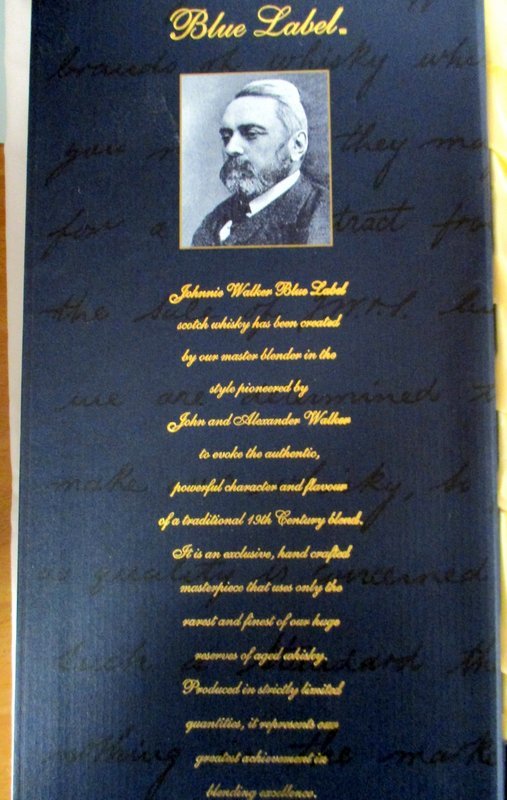 Blue Label.
brands of whisky
you they may
for a tract from
the
we are determined to
make whisky, so
as quality is concerned
such a standard
nothing the market
Johnnie Walker Blue Label
scotch whisky has been created
by our master blender in the
style pioneered by
John and Alexander Walker
to evoke the authentic,
powerful character and flavour
of a traditional 19th Century blend.
It is an exclusive, hand crafted
masterpiece that uses only the
rarest and finest of our huge
reserves of aged whisky.
Produced in strictly limited
quantities, it represents our
greatest achievement in
blending excellence.